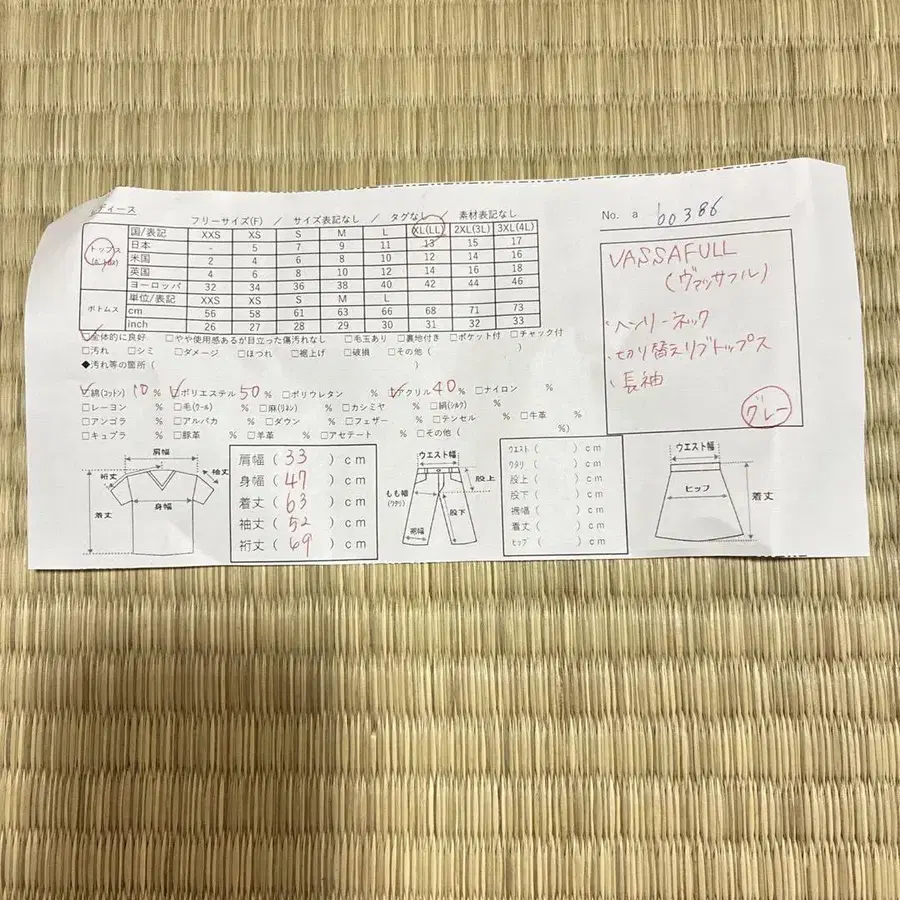 ディース
フリーサイズ(F) / サイズ表記なし / タグなし / 素材表記なし
No. a b0386
トップス
国/表記 XXS XS S M L XL(LL) 2XL(3L) 3XL(4L)
日本 - 5 7 9 11 13 15 17
米国 2 4 6 8 10 12 14 16
英国 4 6 8 10 12 14 16 18
ヨーロッパ 32 34 36 38 40 42 44 46
ボトムス
単位/表記 XXS XS S M L
cm 56 58 61 63 66 68 71 73
inch 26 27 28 29 30 31 32 33
全体的に良好 □やや使用感あるが目立った傷汚れなし □毛玉あり □裏地付き □ポケット付 □チャック付
□汚れ □シミ □ダメージ □ほつれ □裾上げ □破損 □その他( )
◆汚れ等の箇所( )
綿(コットン) 10 % ポリエステル 50 % □ポリウレタン % アクリル 40 % □ナイロン %
□レーヨン % □毛(ウール) % □麻(リネン) % □カシミヤ % □絹(シルク) %
□アンゴラ % □アルパカ % □ダウン % □フェザー % □テンセル % □牛革 %
□キュプラ % □豚革 % □羊革 % □アセテート % □その他( %)
VASSAFULL
(ヴァッサフル)
・ヘンリーネック
・切り替えリブトップス
・長袖
グレー
肩幅
裄丈
袖丈
身幅
着丈
肩幅(33)cm
身幅(47)cm
着丈(63)cm
袖丈(52)cm
裄丈(69)cm
ウエスト幅
股上
もも幅
(ワタリ)
股下
裾幅
ウエスト( )cm
ワタリ( )cm
股上( )cm
股下( )cm
裾幅( )cm
着丈( )cm
ヒップ( )cm
ウエスト幅
ヒップ
着丈